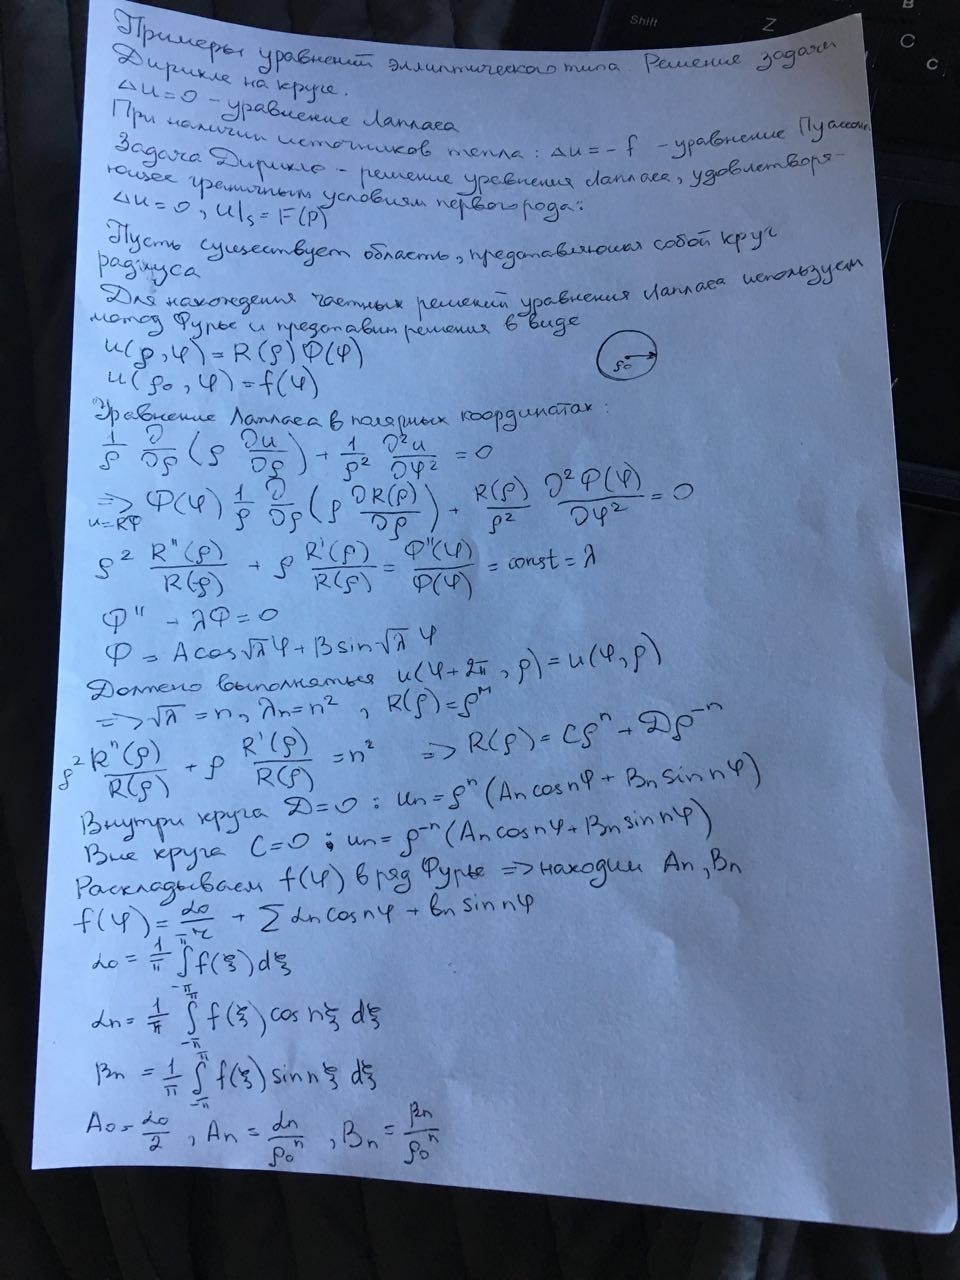 Shift
Z
B
C
C
Примеры уравнений эллиптического типа. Решение задачи
Дирихле на круге.
Δu=0 - уравнение Лапласа
При наличии источников тепла: Δu = -f - уравнение Пуассона
Задача Дирихле - решение уравнения Лапласа, удовлетворя-
ющее граничным условиям первого рода:
Δu=0, u|s = F(p)
Пусть существует область, представляющая собой круг
радиуса
Для нахождения частных решений уравнения Лапласа используем
метод Фурье и представим решения в виде
u(ρ,φ) = R(ρ)Φ(φ)
u(ρ₀,φ) = f(φ)
ρ₀
Уравнение Лапласа в полярных координатах:
1/ρ ∂/∂ρ (ρ ∂u/∂ρ) + 1/ρ² ∂²u/∂φ² = 0
=> u=RΦ Φ(φ) 1/ρ ∂/∂ρ (ρ ∂R(ρ)/∂ρ) + R(ρ)/ρ² ∂²Φ(φ)/∂φ² = 0
ρ² R''(ρ)/R(ρ) + ρ R'(ρ)/R(ρ) = Φ''(φ)/Φ(φ) = const = λ
Φ'' - λΦ = 0
Φ = A cos√λ φ + B sin√λ φ
Должно выполняться u(φ+2π, ρ) = u(φ,ρ)
=> √λ = n, λn = n², R(ρ) = ρᴹ
ρ² R''(ρ)/R(ρ) + ρ R'(ρ)/R(ρ) = n² => R(ρ) = Cρⁿ + Dρ⁻ⁿ
Внутри круга D=0: un = ρⁿ (An cos nφ + Bn sin nφ)
Вне круга C=0: un = ρ⁻ⁿ (An cos nφ + Bn sin nφ)
Раскладываем f(φ) в ряд Фурье => находим An, Bn
f(φ) = α₀/2 + Σ αn cos nφ + βn sin nφ
α₀ = 1/π ∫_{-π}^{π} f(ξ)dξ
αn = 1/π ∫_{-π}^{π} f(ξ) cos nξ dξ
βn = 1/π ∫_{-π}^{π} f(ξ) sin nξ dξ
A₀ = α₀/2, An = αn/ρ₀ⁿ, Bn = βn/ρ₀ⁿ